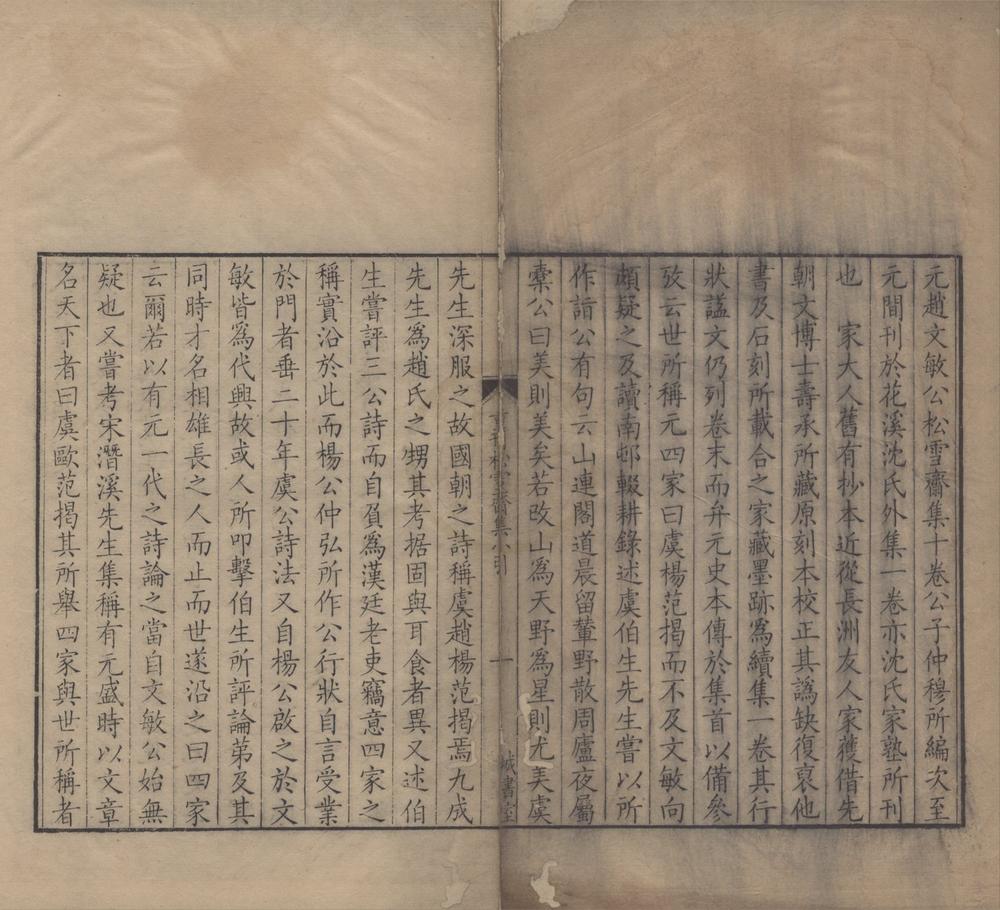 元趙文敏公松雪齋集十卷公子仲穆所編次至
元間刊於花溪沈氏外集一卷亦沈氏家塾所刊
也　家大人舊有抄本近從長洲友人家獲借先
朝文博士壽承所藏原刻本校正其譌缺復裒他
書及石刻所載合之家藏墨跡爲續集一卷其行
狀謚文仍列卷末而弁元史本傳於集首以備參
攷云世所稱元四家曰虞楊范揭而不及文敏向
頗疑之及讀南邨輟耕錄述虞伯生先生嘗以所
作詣公有句云山連閣道晨留輦野散周廬夜屬
櫜公曰美則美矣若改山爲天野爲星則尤美虞
松雪齋集小引
一
城書室
先生深服之故國朝之詩稱虞趙楊范揭焉九成
先生爲趙氏之甥其考据固與耳食者異又述伯
生嘗評三公詩而自負爲漢廷老吏竊意四家之
稱實沿於此而楊公仲弘所作公行狀自言受業
於門者垂二十年虞公詩法又自楊公啟之於文
敏皆爲代興故或人所叩擊伯生所評論第及其
同時才名相雄長之人而止而世遂沿之曰四家
云爾若以有元一代之詩論之當自文敏公始無
疑也又嘗考宋潛溪先生集稱有元盛時以文章
名天下者曰虞歐范揭其所舉四家與世所稱者